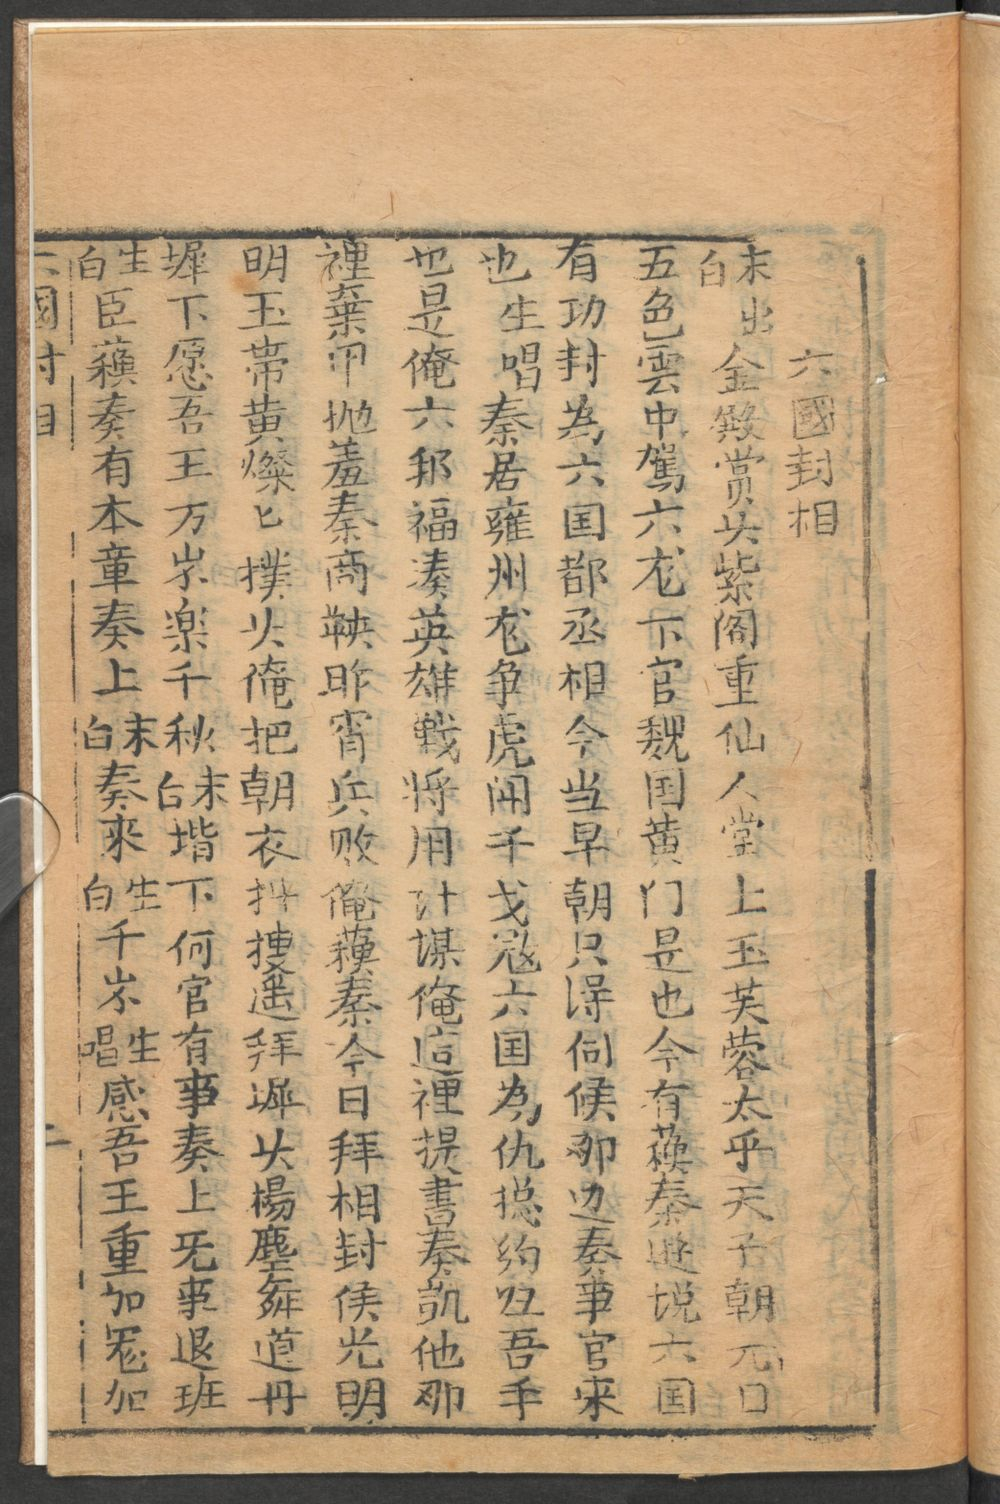 六國封相
末出白金殿赏头紫阁重仙人堂上玉芙蓉太乎天子朝元日
五色雲中駕六尨下官魏国黄门是也今有蘓秦逰悦六国
有功封為六国都丞相今当早朝只得伺候那边奏事官来
也生唱秦居雍州尨争虎闹千戈寇六国為仇揔约在吾手
也是俺六邦福凑英雄戦将用计谋俺這裡提書奏凯他那
裡棄甲抛羞秦商鞅昨宵兵败俺蘓秦今日拜相封侯光明
明玉帯黄燦匕撲头俺把朝衣抖搜遥拜墀头楊塵舞道丹
墀下愿吾王万岁楽千秋末白堦下何官有事奏上旡事退班
生白臣蘓奏有本章奏上末白奏来生白千岁生唱感吾王重加冕加
六國封相
二